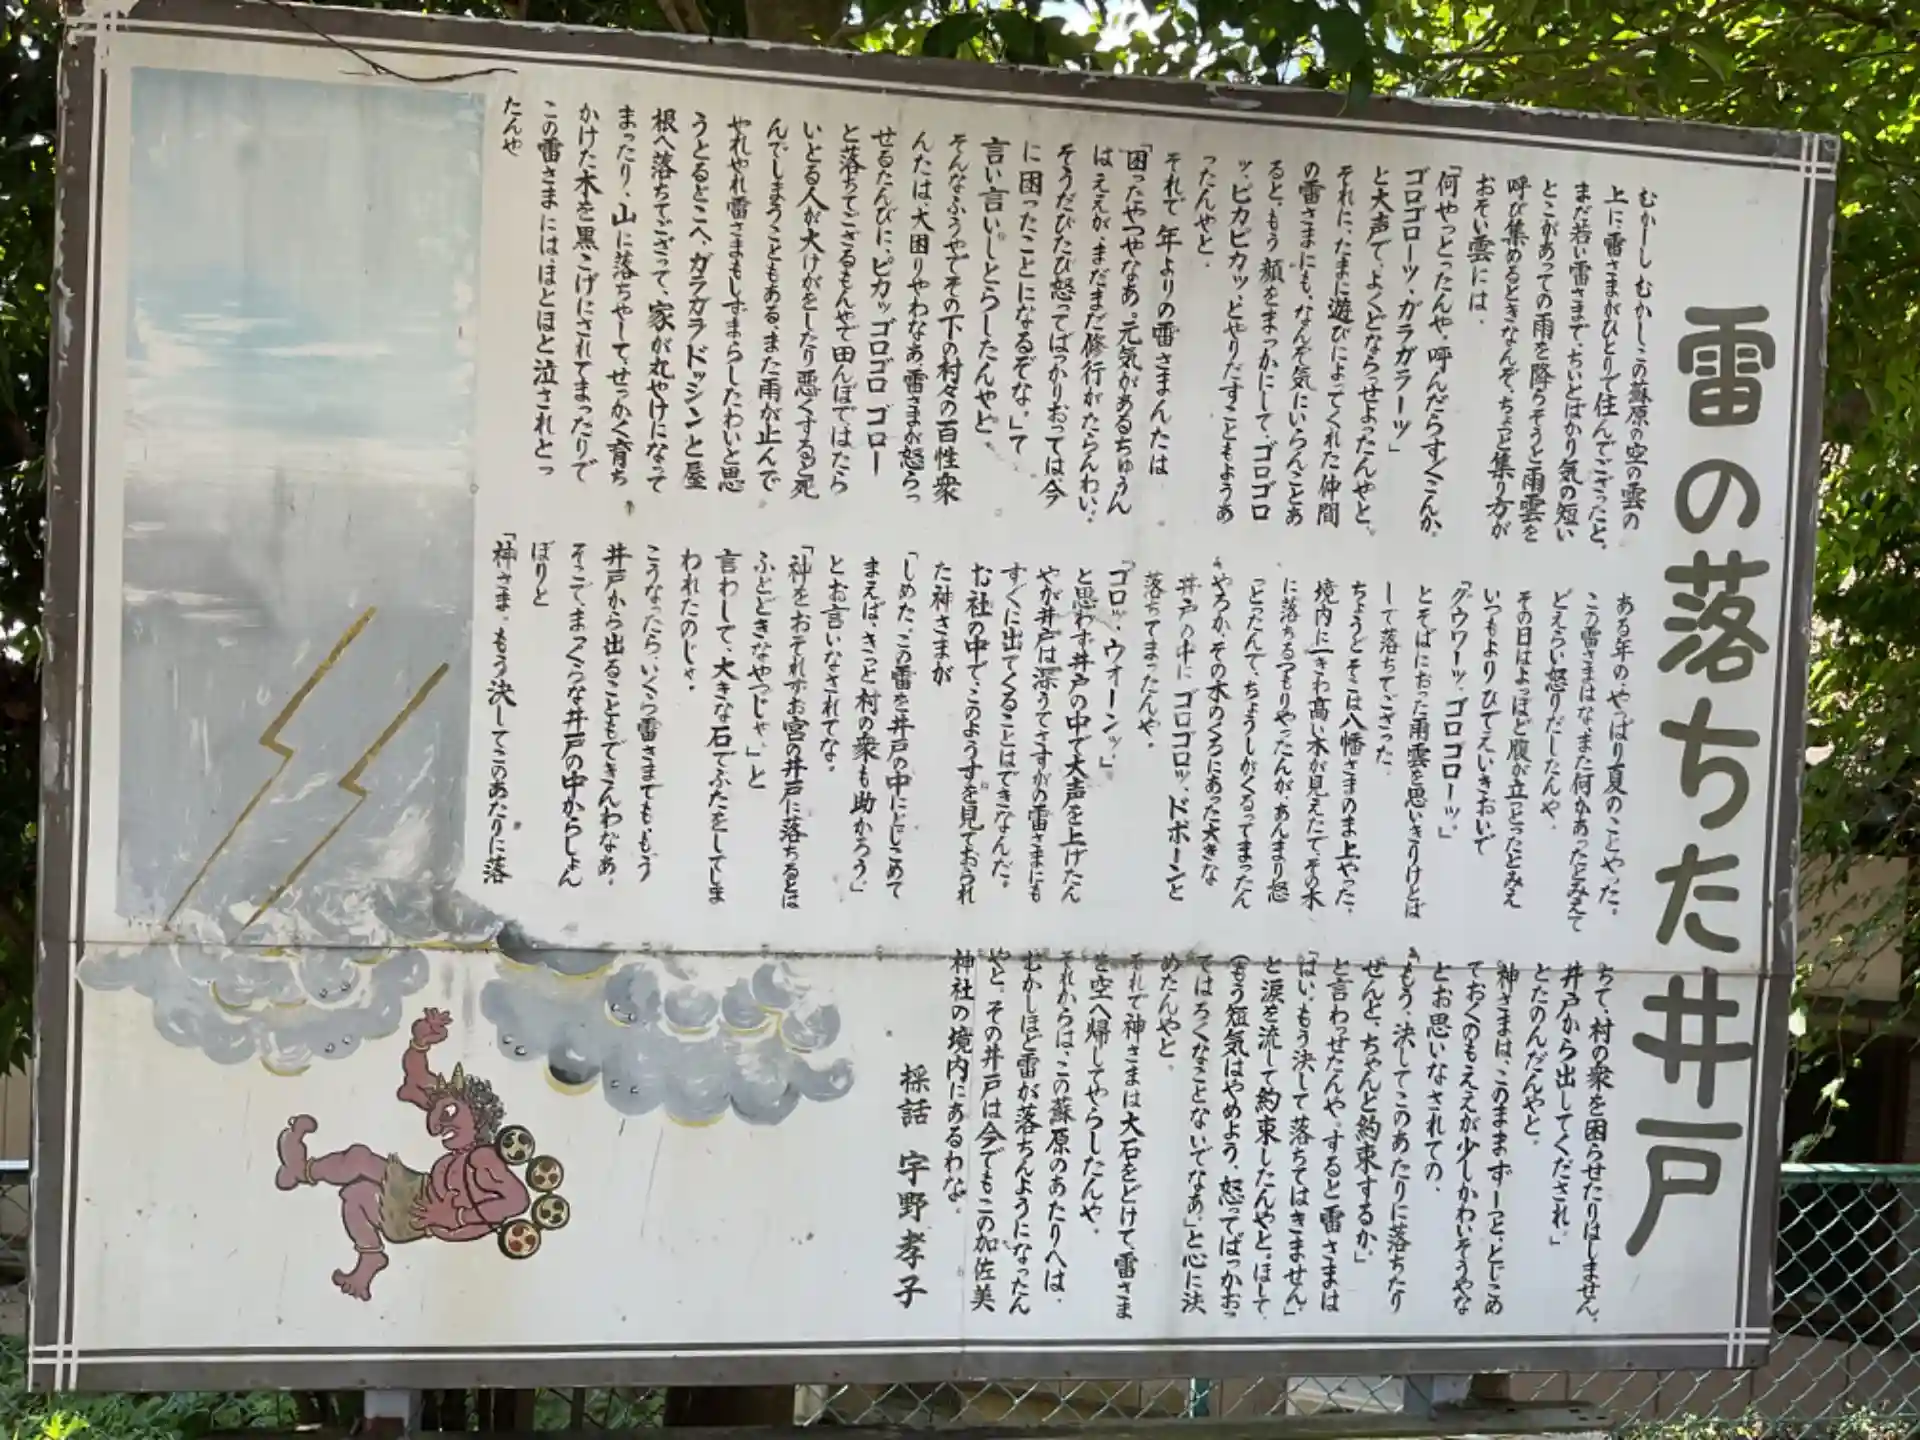 雷の落ちた井戸
むかーしむかし、この蘇原の空の雲の
上に雷さまがひとりで住んでござったと。
まだ若い雷さまで、ちいとばかり気の短い
とこがあっての雨を降らそうと雨雲を
呼び集めるときなんぞ、ちょっと集り方が
おそい雲には、
「何やっとったんや。呼んだらすぐこんか。
ゴロゴローッ、ガラガラーッ」
と大声で、よくどならっせよったんやと。
それに、たまに遊びによってくれた仲間
の雷さまにも、なんぞ気にいらんことあ
ると、もう顔をまっかにして、ゴロゴロ
ッ、ピカピカッ、とやりだすこともようあ
ったんやと。
それで年よりの雷さまんたは
「困ったやつやなあ。元気があるちゅうん
はええが、まだまだ修行がたらんわい。
そうだびたび怒ってばっかりおっては今
に困ったことになるぞな。」て
言い言いしとらしたんやと。
そんなふうやでその下の村々の百性衆
んたは、大困りやわなあ雷さまが怒らっ
せるたんびに、ピカッゴロゴロ ゴロー
と落ちてござるもんやで田んぼではたら
いとる人が大けがをしたり悪くすると死
んでしまうこともある、また雨が止んで
やれやれ雷さまもしずまらしたわいと思
うとるとこへ、ガラガラドッシンと屋
根へ落ちてござって、家が丸やけになって
まったり、山に落ちやして、せっかく育ち
かけた木を黒こげにされてまったりで
この雷さまには、ほとほと泣されとっ
たんや
ある年の、やっぱり夏のことやった。
この雷さまはな、また何かあったとみえて
どえらい怒りだしたんや。
その日はよっぽど腹が立っとったとみえ
いつもよりひでえいきおいで
「グウワーッ、ゴロゴローッ」
とそばにおった雨雲を思いきりけとば
して落ちてござった。
ちょうどそこは八幡さまのま上やった。
境内に一きわ高い木が見えたで、その木
に落ちるつもりやったんが、あんまり怒
っとったんで、ちょうしがくるってまったん
やろか、その木のくろにあった大きな
井戸の中に ゴロゴロッ、ドボーンと
落ちてまったんや。
「ゴロッ、ウオーンッ」
と思わず井戸の中で大声を上げたん
やが井戸は深うてさすがの雷さまにも
すぐに出てくることはできなんだ。
お社の中で、このようすを見ておられ
た神さまが
「しめた、この雷を井戸の中にとじこめて
まえば、きっと村の衆も助かろう」
とお言いなされてな。
「神をおそれずお宮の井戸に落ちるとは
ふとどきなやつじゃ。」と
言わして、大きな石でふたをしてしま
われたのじゃ。
こうなったら、いくら雷さまでももう
井戸から出ることもできんわなあ。
そこで、まっくらな井戸の中からしょん
ぼりと
「神さま。もう決してこのあたりに落
ちて、村の衆を困らせたりはしません。
井戸から出してくだされ。」
とたのんだんやと。
神さまは、このまますーっと、とじこめ
ておくのもええが少しかわいそうやな
とお思いなされての、
「もう、決してこのあたりに落ちたり
せんと、ちゃんと約束するか」
と言わっせたんや。すると雷さまは
「はい、もう決して落ちてはきません」
と涙を流して約束したんやと。ほして
(もう短気はやめよう、怒ってばっかおっ
てはろくなことないでなあ」と心に決
めたんやと。
それで神さまは大石をどけて雷さま
を空へ帰してやらしたんや。
それからは、この蘇原のあたりへは、
むかしほど雷が落ちんようになったん
やと。その井戸は今でもこの加佐美
神社の境内にあるわな。
採話 宇野孝子